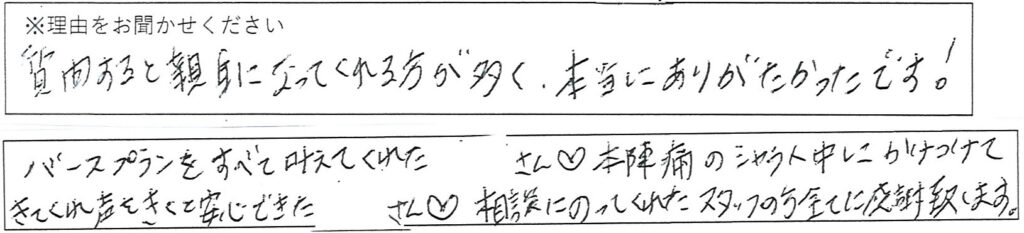 ※理由をお聞かせください
質問すると親身になってくれる方が多く、本当にありがたかったです!
バースプランをすべて叶えてくれた さん♡本陣痛の中にかけつけて
きてくれ声をきくと安心できた さん♡相談にのってくれたスタッフの方全てに感謝致します。